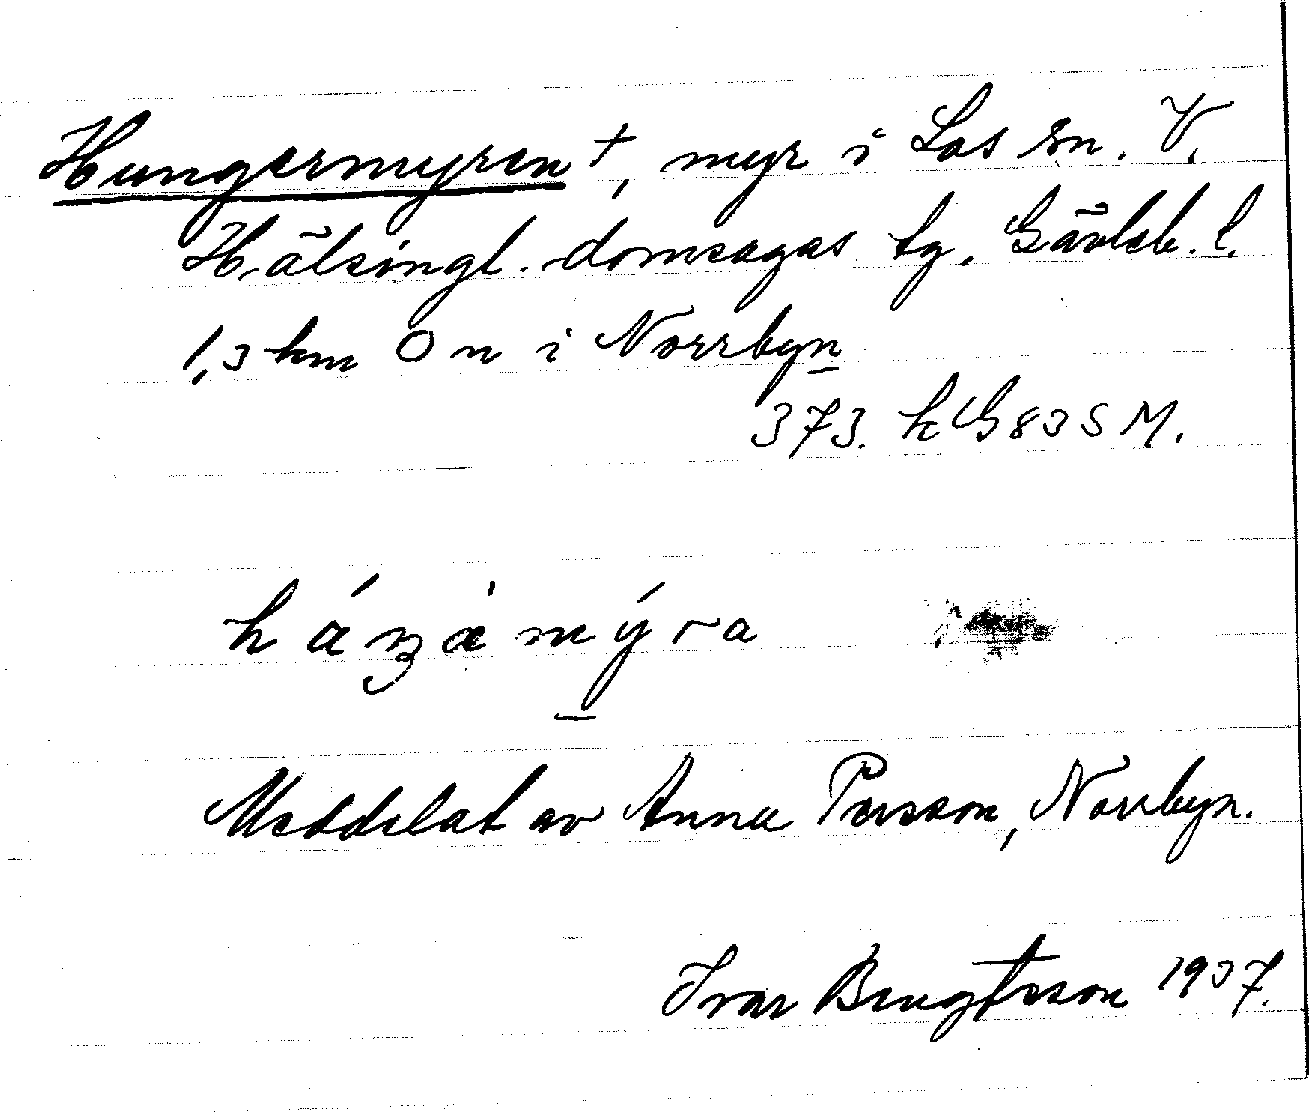 Hungermyren †, myr i Los sn. V.
Hälsingl. domsagas tg. Gävleb. l.
1,3 km O n i Norrbyn
373. k G 83 S M.
háŋàmýra
Meddelat av Anna Persson, Norrbyn.
Ivar Bengtsson 1937.